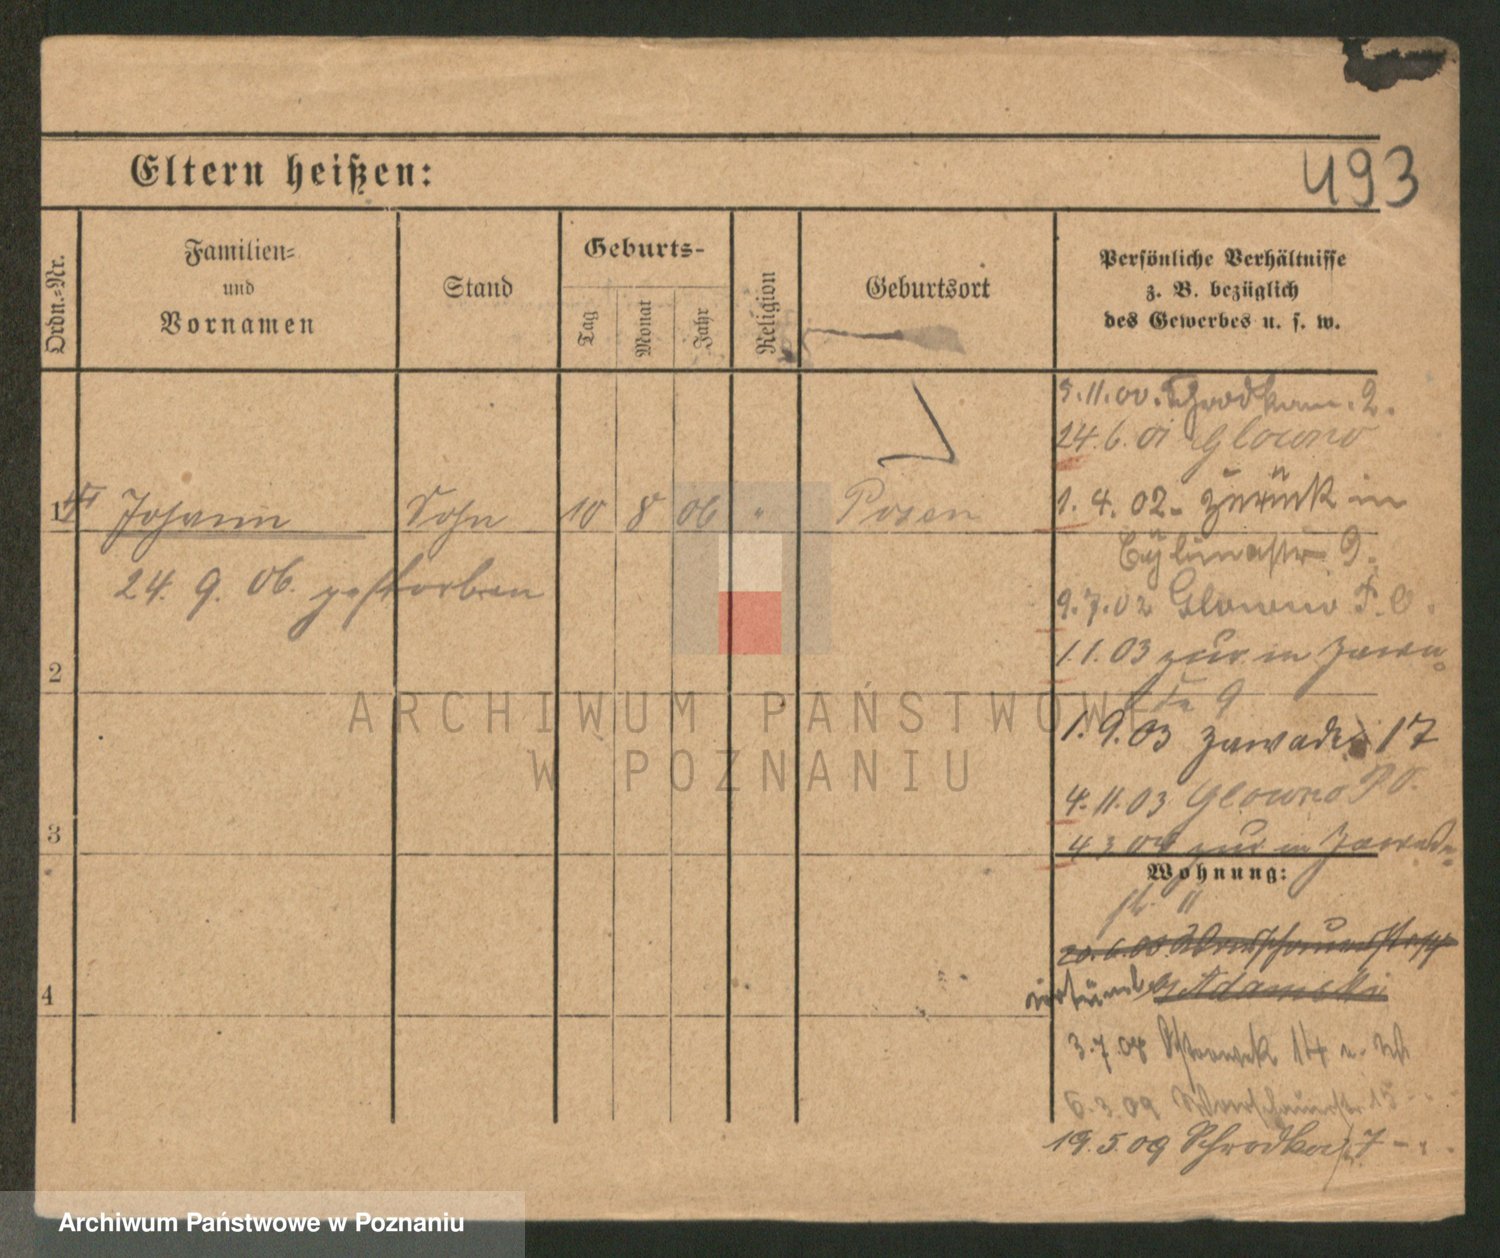 Eltern heißen:
493
Ordn.-Nr.
Familien-
und
Vornamen
Stand
Geburts-
Tag
Monat
Jahr
Religion
Geburtsort
Persönliche Verhältnisse
z. B. bezüglich
des Gewerbes u. s. w.
5.11.00. Schrodkam. 2.
24.6.01 Glowno
1 Johann Sohn 10 8 06 " Posen
1.4.02 - zurück in
9.
24. 9. 06. gestorben
9.7.02 Glowno P. O.
1.1.03 zur in Zawa-
2
9
1.9.03 Zawade 17
4.11.03 Glowno P. O.
3
4.3.04 zur in Zawade
Wohnung:
20.6.08
Adamski
4
3.7.08 14
6.3.09 Warschauerstr. 15
19.5.09 Schrodka 7
ARCHIWUM PAŃSTWOWE
W POZNANIU
Archiwum Państwowe w Poznaniu